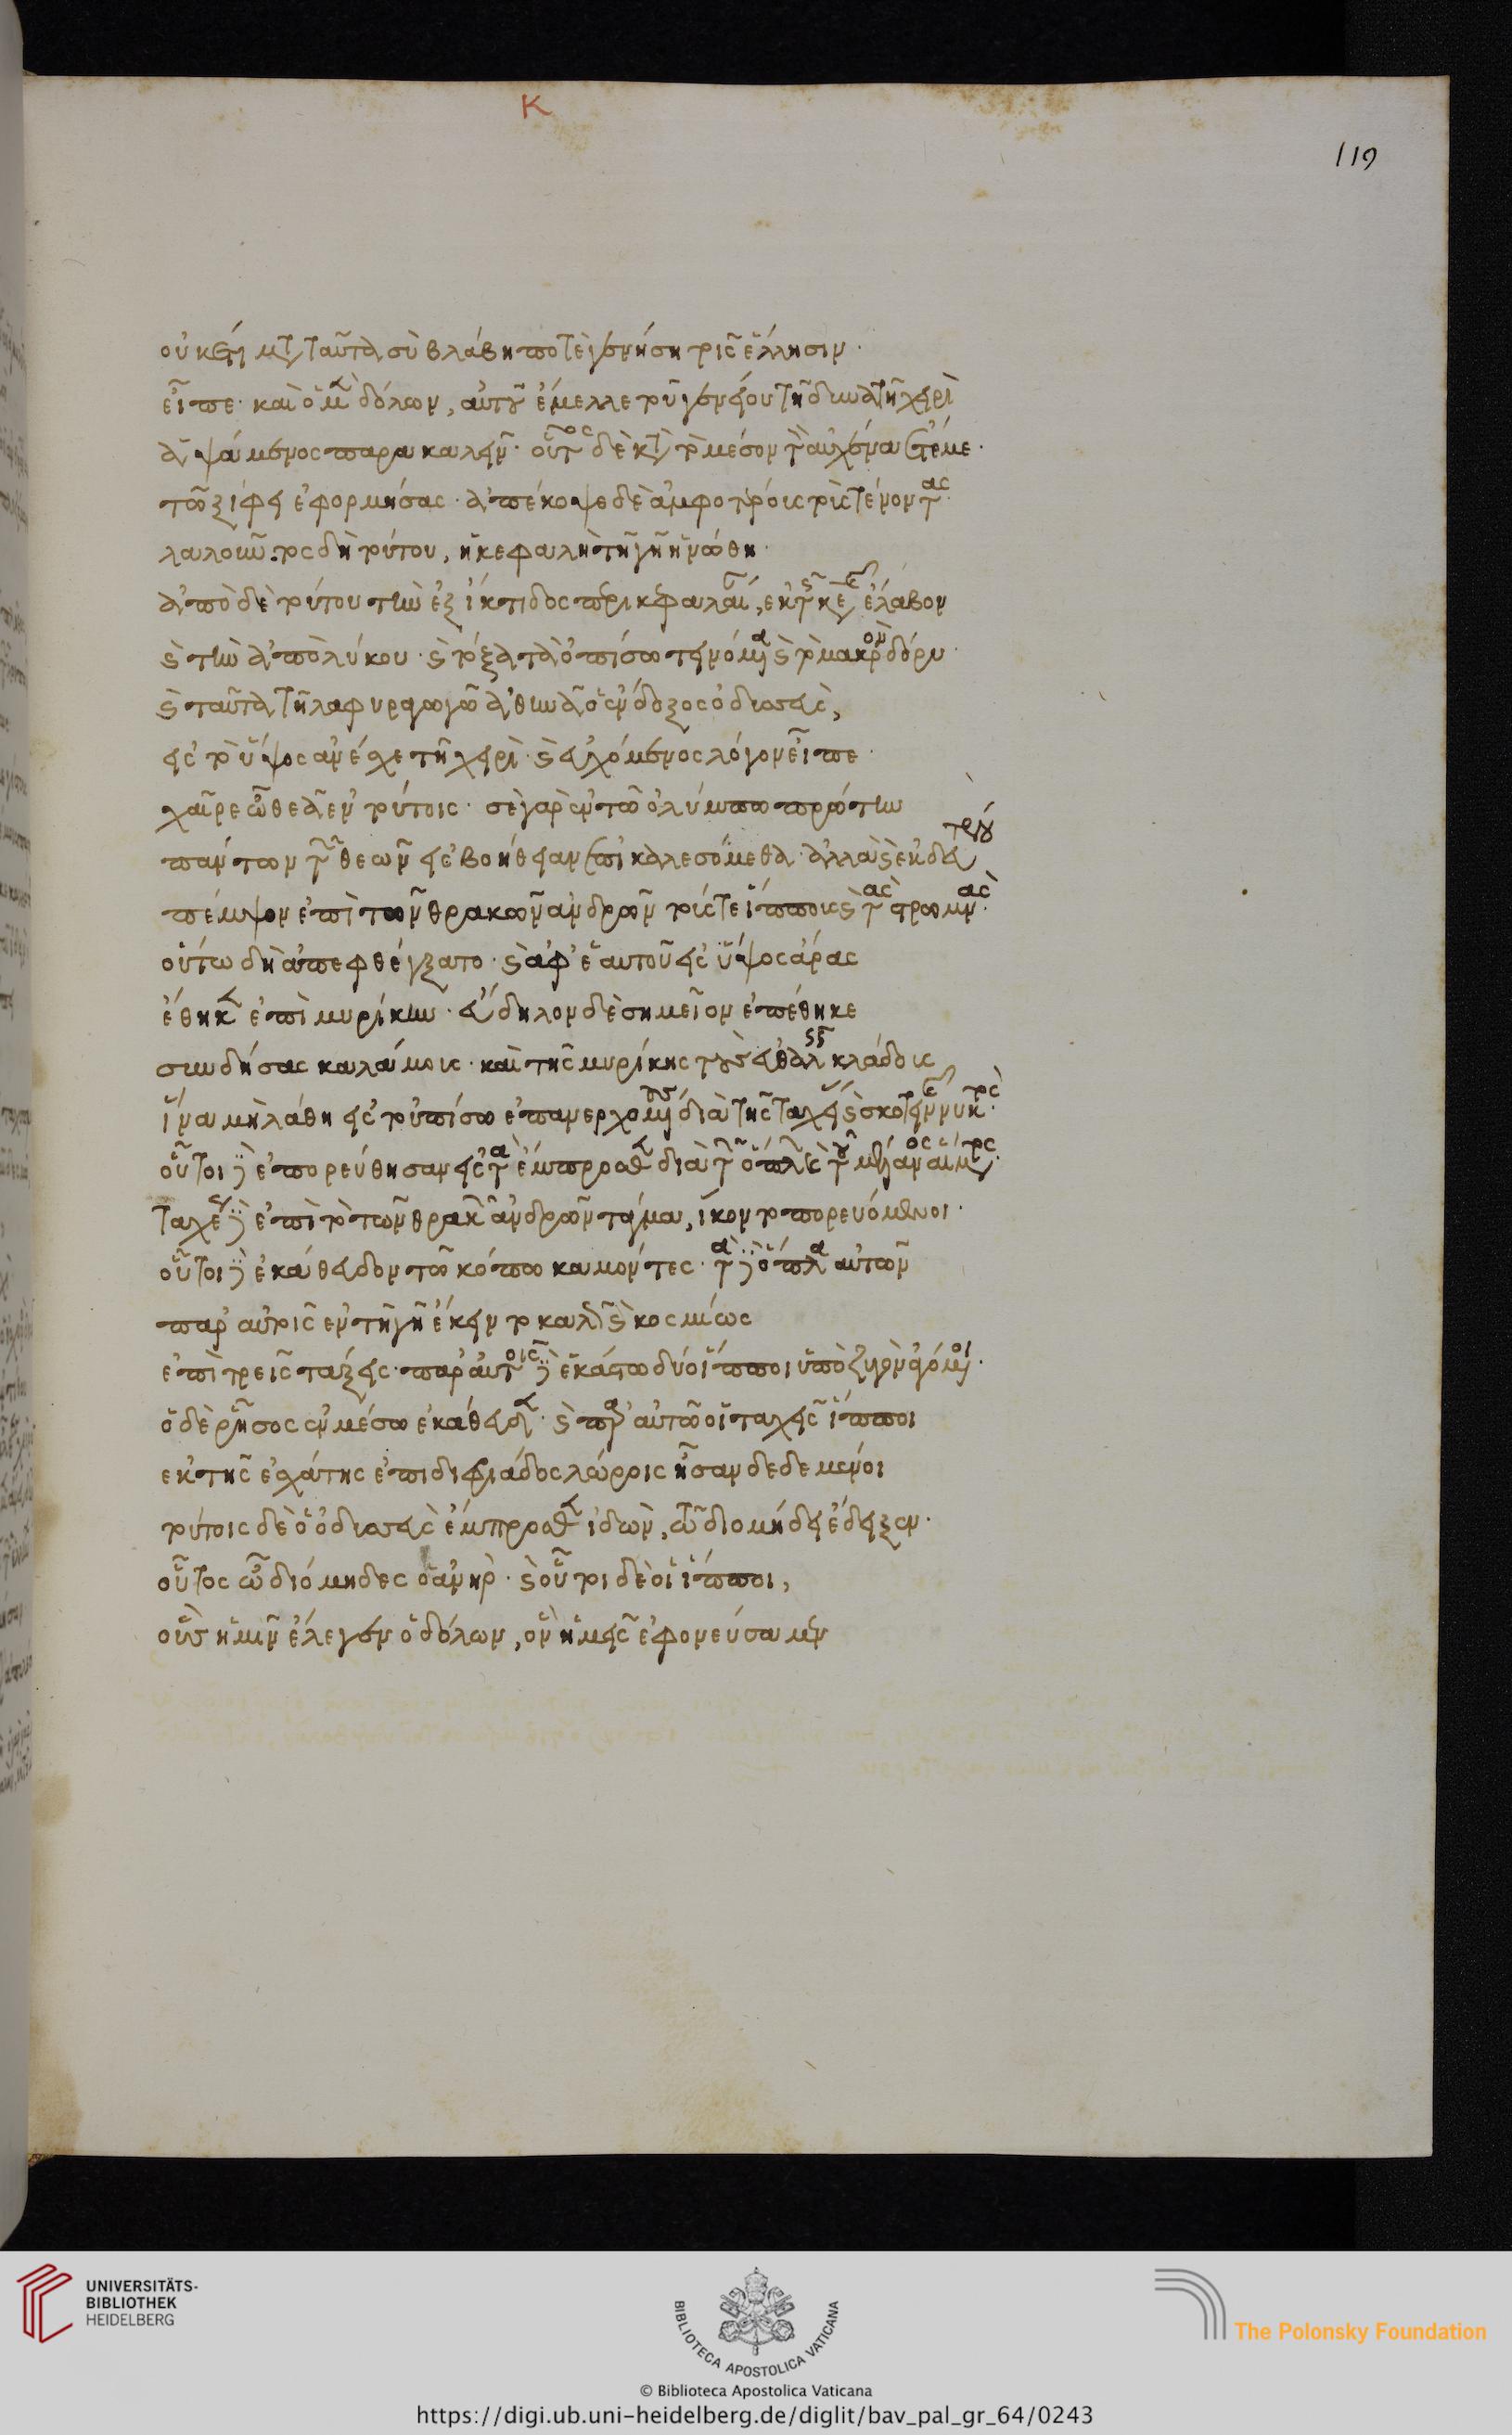 Κ
119
οὐκέτι μετὰ ταῦτα σὺ βλάβη ποτὲ γενήση τοῖς ἕλλησιν.
εἶπε. καὶ ὁ μὲν δόλων, αὐτοῦ ἔμελλε τοῦ γενείου τῇ δυνατῇ χειρὶ
ἁψάμενος παρακαλεῖν. οὗτος δὲ κατὰ τὸ μέσον τὸν αὐχένα ἔτεμε.
τῶ ξίφει ἐφορμήσας. ἀπέκοψε δὲ ἀμφοτέρους τοὺς τένοντας.
λαλοῦντος δὴ τούτου, ἡ κεφαλὴ τῇ γῇ ἡνώθη.
ἀπὸ δὲ τούτου τὴν ἐξ ἴκτιδος περικεφαλαίαν, ἐκ τῆς κεφαλῆς ἔλαβον
καὶ τὴν ἀπὸ λύκου. καὶ τόξα τὰ ὀπίσω τεινόμενα καὶ τὸ μακρὸν δόρυ.
καὶ ταῦτα τῇ λαφυραγωγῶ ἀθηνᾶ ὁ ἔνδοξος ὀδυσσεὺς,
εἰς τὸ ὕψος ἀνέσχε τῇ χειρὶ. καὶ εὐχόμενος λόγον εἶπε.
χαῖρε ὦ θεὰ ἐν τούτοις. σὲ γὰρ ἐν τῶ ὀλύμπω πρώτην
πάντων τῶν θεῶν εἰς βοήθειαν ἐπικαλεσόμεθα. ἀλλὰ καὶ ἐκ δευτέρου
πέμψον ἐπὶ τῶν θρακῶν ἀνδρῶν τούς τε ἵππους καὶ τὰς στρωμνὰς.
οὕτω δὴ ἀπεφθέγξατο. καὶ ἀφ' ἑαυτοῦ εἰς ὕψος ἄρας
ἔθηκεν ἐπὶ μυρίκην. εὔδηλον δὲ σημεῖον ἐπέθηκε
συνδήσας καλάμους. καὶ τῆς μυρίκης τοὺς εὐθαλεῖς κλάδους
ἵνα μὴ λάθη εἰς τοὐπίσω ἐπανερχομένους διὰ τῆς ταχείας καὶ σκοτεινῆς νυκτὸς.
οὗτοι δὲ ἐπορεύθησαν εἰς τὰ ἔμπροσθεν διὰ τῶν ὅπλων καὶ τοῦ μέλανος αἵματος.
ταχέως δὲ ἐπὶ τὸ τῶν θρακῶν ἀνδρῶν τάγμα, ἵκοντο πορευόμενοι.
οὗτοι δὲ ἐκάθευδον τῶ κόπω καμόντες. τὰ δὲ ὅπλα αὐτῶν
παρ' αὐτοῖς ἐν τῇ γῇ ἔκειντο καλῶς καὶ κοσμίως
ἐπὶ τρεῖς τάξεις. παρ' αὐτοῖς δὲ ἑκάστω δύο ἵπποι ὑπὸ ζυγὸν ἀγόμενοι.
ὁ δὲ ῥῆσος ἐν μέσω ἐκάθευδεν. καὶ παρ' αὐτῶ οἱ ταχεῖς ἵπποι
ἐκ τῆς ἐσχάτης ἐπιδιφριάδος λώροις ἦσαν δεδεμένοι
τούτους δὲ ὁ ὀδυσσεὺς ἔμπροσθεν ἰδὼν, τῶ διομήδει ἔδειξεν.
οὗτος ὦ διόμηδες ὁ ἀνὴρ. καὶ οὗτοι δὲ οἱ ἵπποι,
οὓς ἡμῖν ἔλεγεν ὁ δόλων, ὃν ἡμεῖς ἐφονεύσαμεν
UNIVERSITÄTS-
BIBLIOTHEK
HEIDELBERG
BIBLIOTECA APOSTOLICA VATICANA
The Polonsky Foundation
© Biblioteca Apostolica Vaticana
https://digi.ub.uni-heidelberg.de/diglit/bav_pal_gr_64/0243